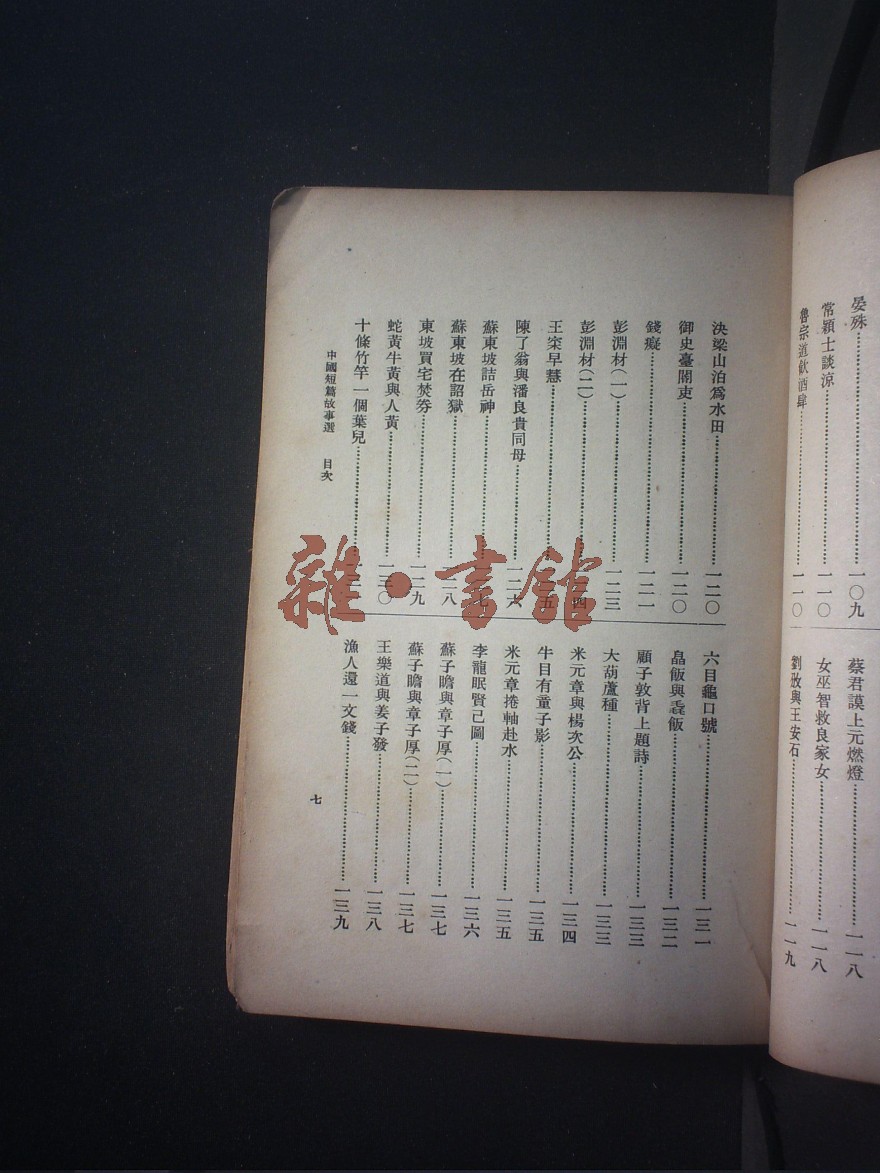 晏殊……一〇九
常潁士談涼……一一〇
魯宗道飲酒肆……一一〇
蔡君謨上元燃燈……一一八
女巫智救良家女……一一八
劉攽與王安石……一一九
決梁山泊爲水田……一二〇
御史臺閽吏……一二〇
錢癡……一二一
彭淵材(一)……一二三
彭淵材(二)……一二四
王寀早慧……五
陳了翁與潘良貴同母……一二六
蘇東坡詰岳神……七
蘇東坡在詔獄……二八
東坡買宅焚券……一二九
蛇黃牛黃與人黃……一三〇
十條竹竿一個葉兒……
六目龜口號……一三一
皛飯與毳飯……一三二
顧子敦背上題詩……一三三
大葫蘆種……一三三
米元章與楊次公……一三四
牛目有童子影……一三五
米元章捲軸赴水……一三五
李龍眠賢己圖……一三六
蘇子瞻與章子厚(一)……一三七
蘇子瞻與章子厚(二)……一三七
王樂道與姜子發……一三八
漁人還一文錢……一三九
中國短篇故事選 目次
七
雜·書館